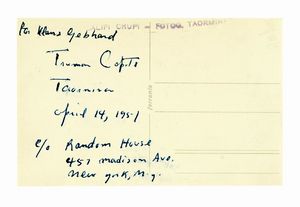 For Klaus Gebhard
CRUPI - FOTOG. TAORMINA
Truman Capote
Taormina
April 14, 1951
c/o Random House
457 Madison Ave.
New York, N.Y.